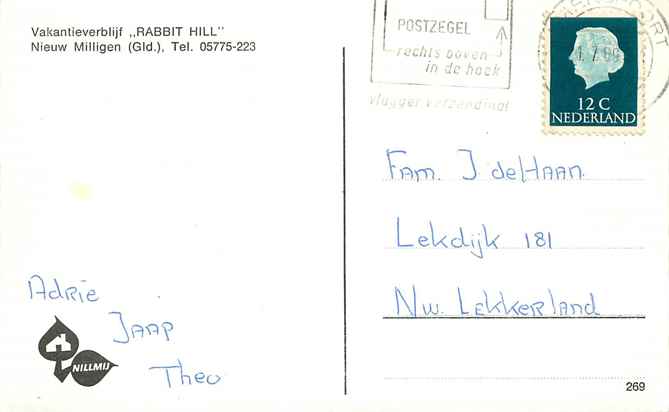 Vakantieverblijf „RABBIT HILL"
Nieuw Milligen (Gld.), Tel. 05775-223
POSTZEGEL
rechts boven
in de hoek
vlugger verzending!
12 C
NEDERLAND
Fam. J de Haan
Lekdijk 181
Nw. Lekkerland
Adrie
Jaap
Theo
NILLMIJ
269